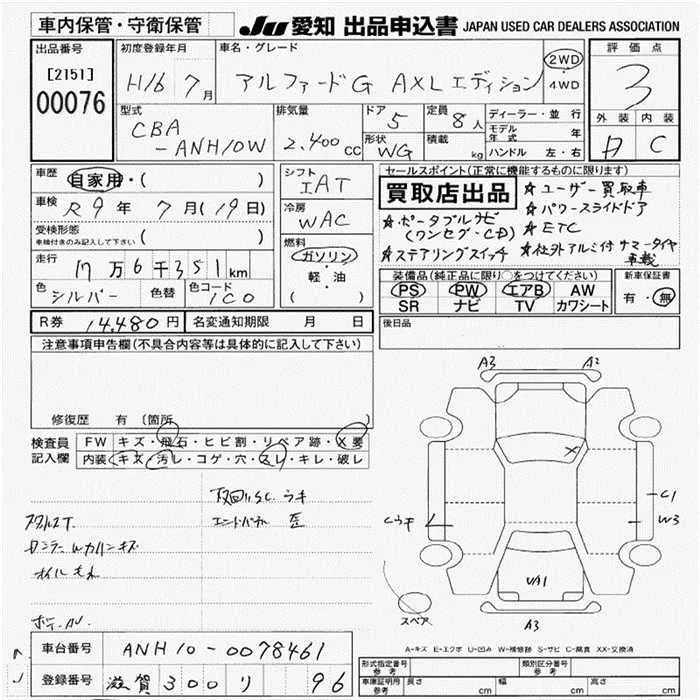 車内保管・守衛保管 JU 愛知 出品申込書 JAPAN USED CAR DEALERS ASSOCIATION
出品番号 初度登録年月 車名・グレード 評価点
[2151] 00076 H16 7月 アルファードG AXLエディション 2WD・4WD 3
型式 排気量 ドア 定員 ディーラー・並行 外装 内装
CBA-ANH10W 2,400cc 5 8人 モデル年式 年 A C
形状 WG 積載 kg ハンドル 左・右
車歴 自家用・( ) シフト IAT セールスポイント(正常に機能するものに限ります)
買取店出品 ☆ユーザー買取車
車検 R9年 7月(19日) 冷房 WAC ☆ポータブルナビ ☆パワースライドドア
(ワンセグ・CD) ☆ETC
受検形態 車検付きのみ記入して下さい ( ) 燃料 ☆ステアリングスイッチ ☆社外アルミ付サマータイヤ車載
走行 17万6千351km ガソリン・軽・油 ( ) 装備品(純正品に限り○をつけてください) 新車保証書
色 シルバー 色替 色コード 1C0 PS PW エアB AW 有・無
SR ナビ TV カワシート
R券 14,480円 名変通知期限 月 日 後日品
注意事項申告欄(不具合内容等は具体的に記入して下さい)
A3 A2
修復歴 有〔箇所
検査員記入欄 FW キズ・飛石・ヒビ割・リペア跡・X要
内装 キズ・汚レ・コゲ・穴・スレ・キレ・破レ
X
C1
W3
エンドパネル
オイルもれ
UA1
スペア
A3
A-キズ E-エクボ U-凹み W-補修跡 S-サビ C-腐食 XX-交換済
車台番号 ANH10-0078461
登録番号 滋賀 300 リ 96
形式指定番号 参考 類別区分番号 参考
車庫証明用 参考 長さ cm 幅 cm 高さ cm